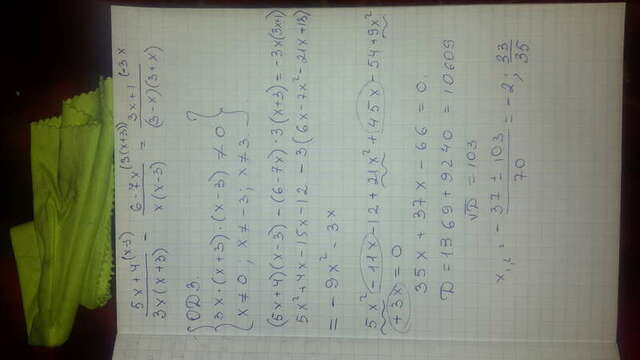 5x+4^(x-3) / 3x(x+3) - 6-7x^(3(x+3)) / x(x-3) = 3x+1^(-3x) / (3-x)(3+x)
ОДЗ.
{ 3x·(x+3)·(x-3) ≠ 0 }
{ x≠0; x≠-3; x≠3. }
(5x+4)(x-3) - (6-7x)·3(x+3) = -3x(3x+1)
5x²+4x-15x-12 - 3(6x-7x²-21x+18)
= -9x² - 3x
5x²-11x-12+21x²+45x-54+9x²
+3x = 0
35x + 37x - 66 = 0.
D = 1369 + 9240 = 10609
√D = 103
x₁,₂ = -37±103 / 70 = -2; 33/35